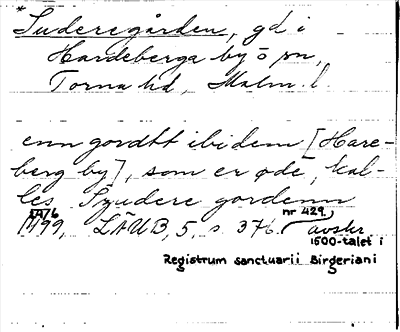 *Suderegården, gd i
Hardeberga by o sn,
Torna hd, Malm. l.
enn gordtt ibidem [Hare-
berg by], som er øde, kal-
les Syudere gordenn
1499, LÄUB, 5, s. 376. nr 429, avskr
1500-talet i
Registrum sanctuarii Birgeriani